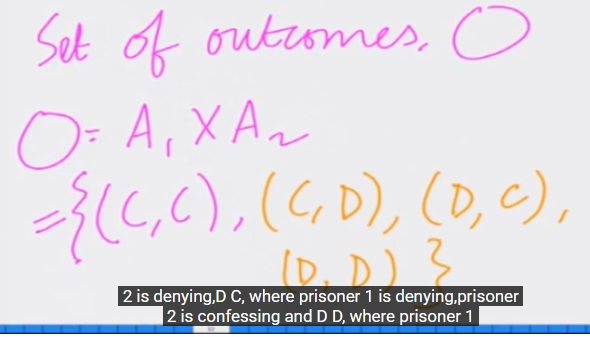 Set of outcomes. O
O = A₁ X A₂
= {(C,C), (C,D), (D,C),
(D,D)}
2 is denying,D C, where prisoner 1 is denying,prisoner
2 is confessing and D D, where prisoner 1